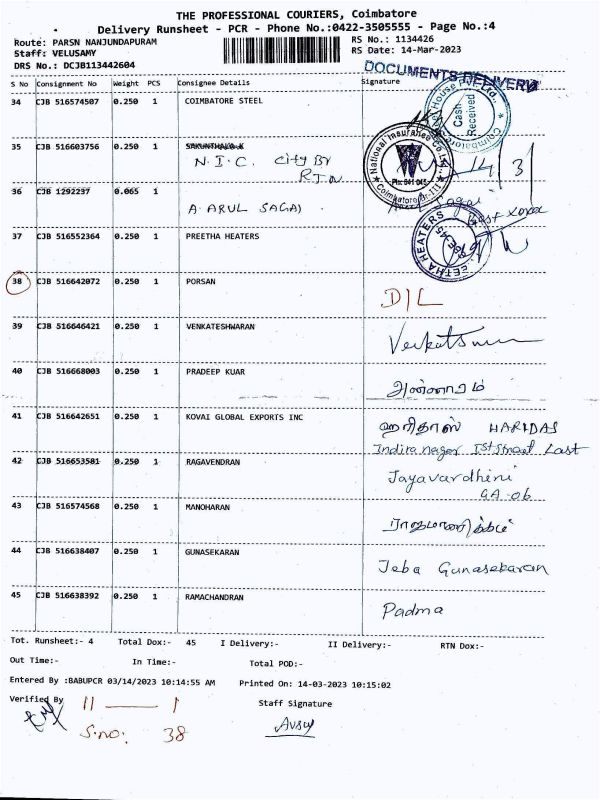 THE PROFESSIONAL COURIERS, Coimbatore
Delivery Runsheet - PCR - Phone No.:0422-3505555 - Page No.:4
Route: PARSN NANJUNDAPURAM
RS No.: 1134426
Staff: VELUSAMY
RS Date: 14-Mar-2023
DRS No.: DCJB113442604
DOCUMENTS DELIVERY
S No Consignment No Weight PCS Consignee Details Signature
34 CJB 516574507 0.250 1 COIMBATORE STEEL
Cash
Received
Coimbatore
35 CJB 516603756 0.250 1
N.I.C. City Br
National Insurance Co. Ltd.
14/3
36 CJB 1292237 0.065 1
A. ARUL SAGAJ
37 CJB 516552364 0.250 1 PREETHA HEATERS
EETHA HEATERS
38 CJB 516642072 0.250 1 PORSAN D/L
39 CJB 516646421 0.250 1 VENKATESHWARAN
40 CJB 516668003 0.250 1 PRADEEP KUAR
41 CJB 516642651 0.250 1 KOVAI GLOBAL EXPORTS INC ஹரிதாஸ் HARIDAS
Indira nagar 1st street Last
42 CJB 516653501 0.250 1 RAGAVENDRAN Jayavardhini
GA-06
43 CJB 516574568 0.250 1 MANOHARAN
44 CJB 516638407 0.250 1 GUNASEKARAN Jeba Gunasekaran
45 CJB 516638392 0.250 1 RAMACHANDRAN Padma
Tot. Runsheet:- 4 Total Dox:- 45 I Delivery:- II Delivery:- RTN Dox:-
Out Time:- In Time:- Total POD:-
Entered By :BABUPCR 03/14/2023 10:14:55 AM Printed On: 14-03-2023 10:15:02
Verified By 11 — 1 Staff Signature
S.no: 38